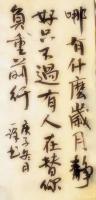 哪有什麼歲月靜
好只不過有人在替你
負重前行
庚子癸日